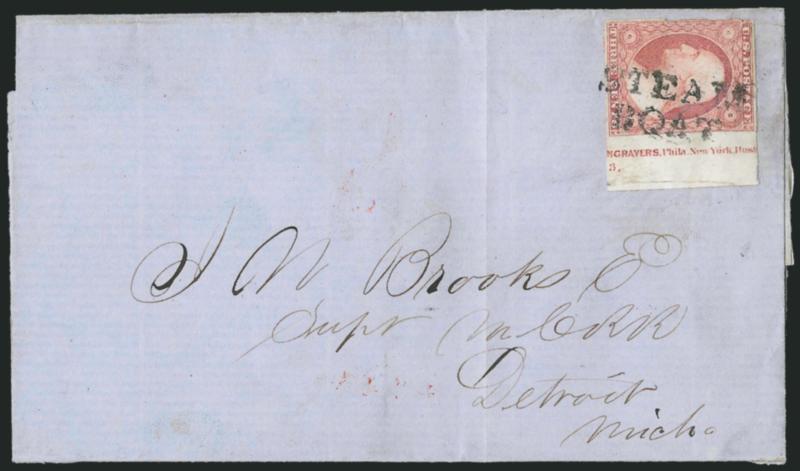 U.S. POSTAGE
STEAM
BOAT
NGRAVERS, Phila. New York, Bost
8.
J W Brooks E
Supt M C R R
Detroit
Mich.